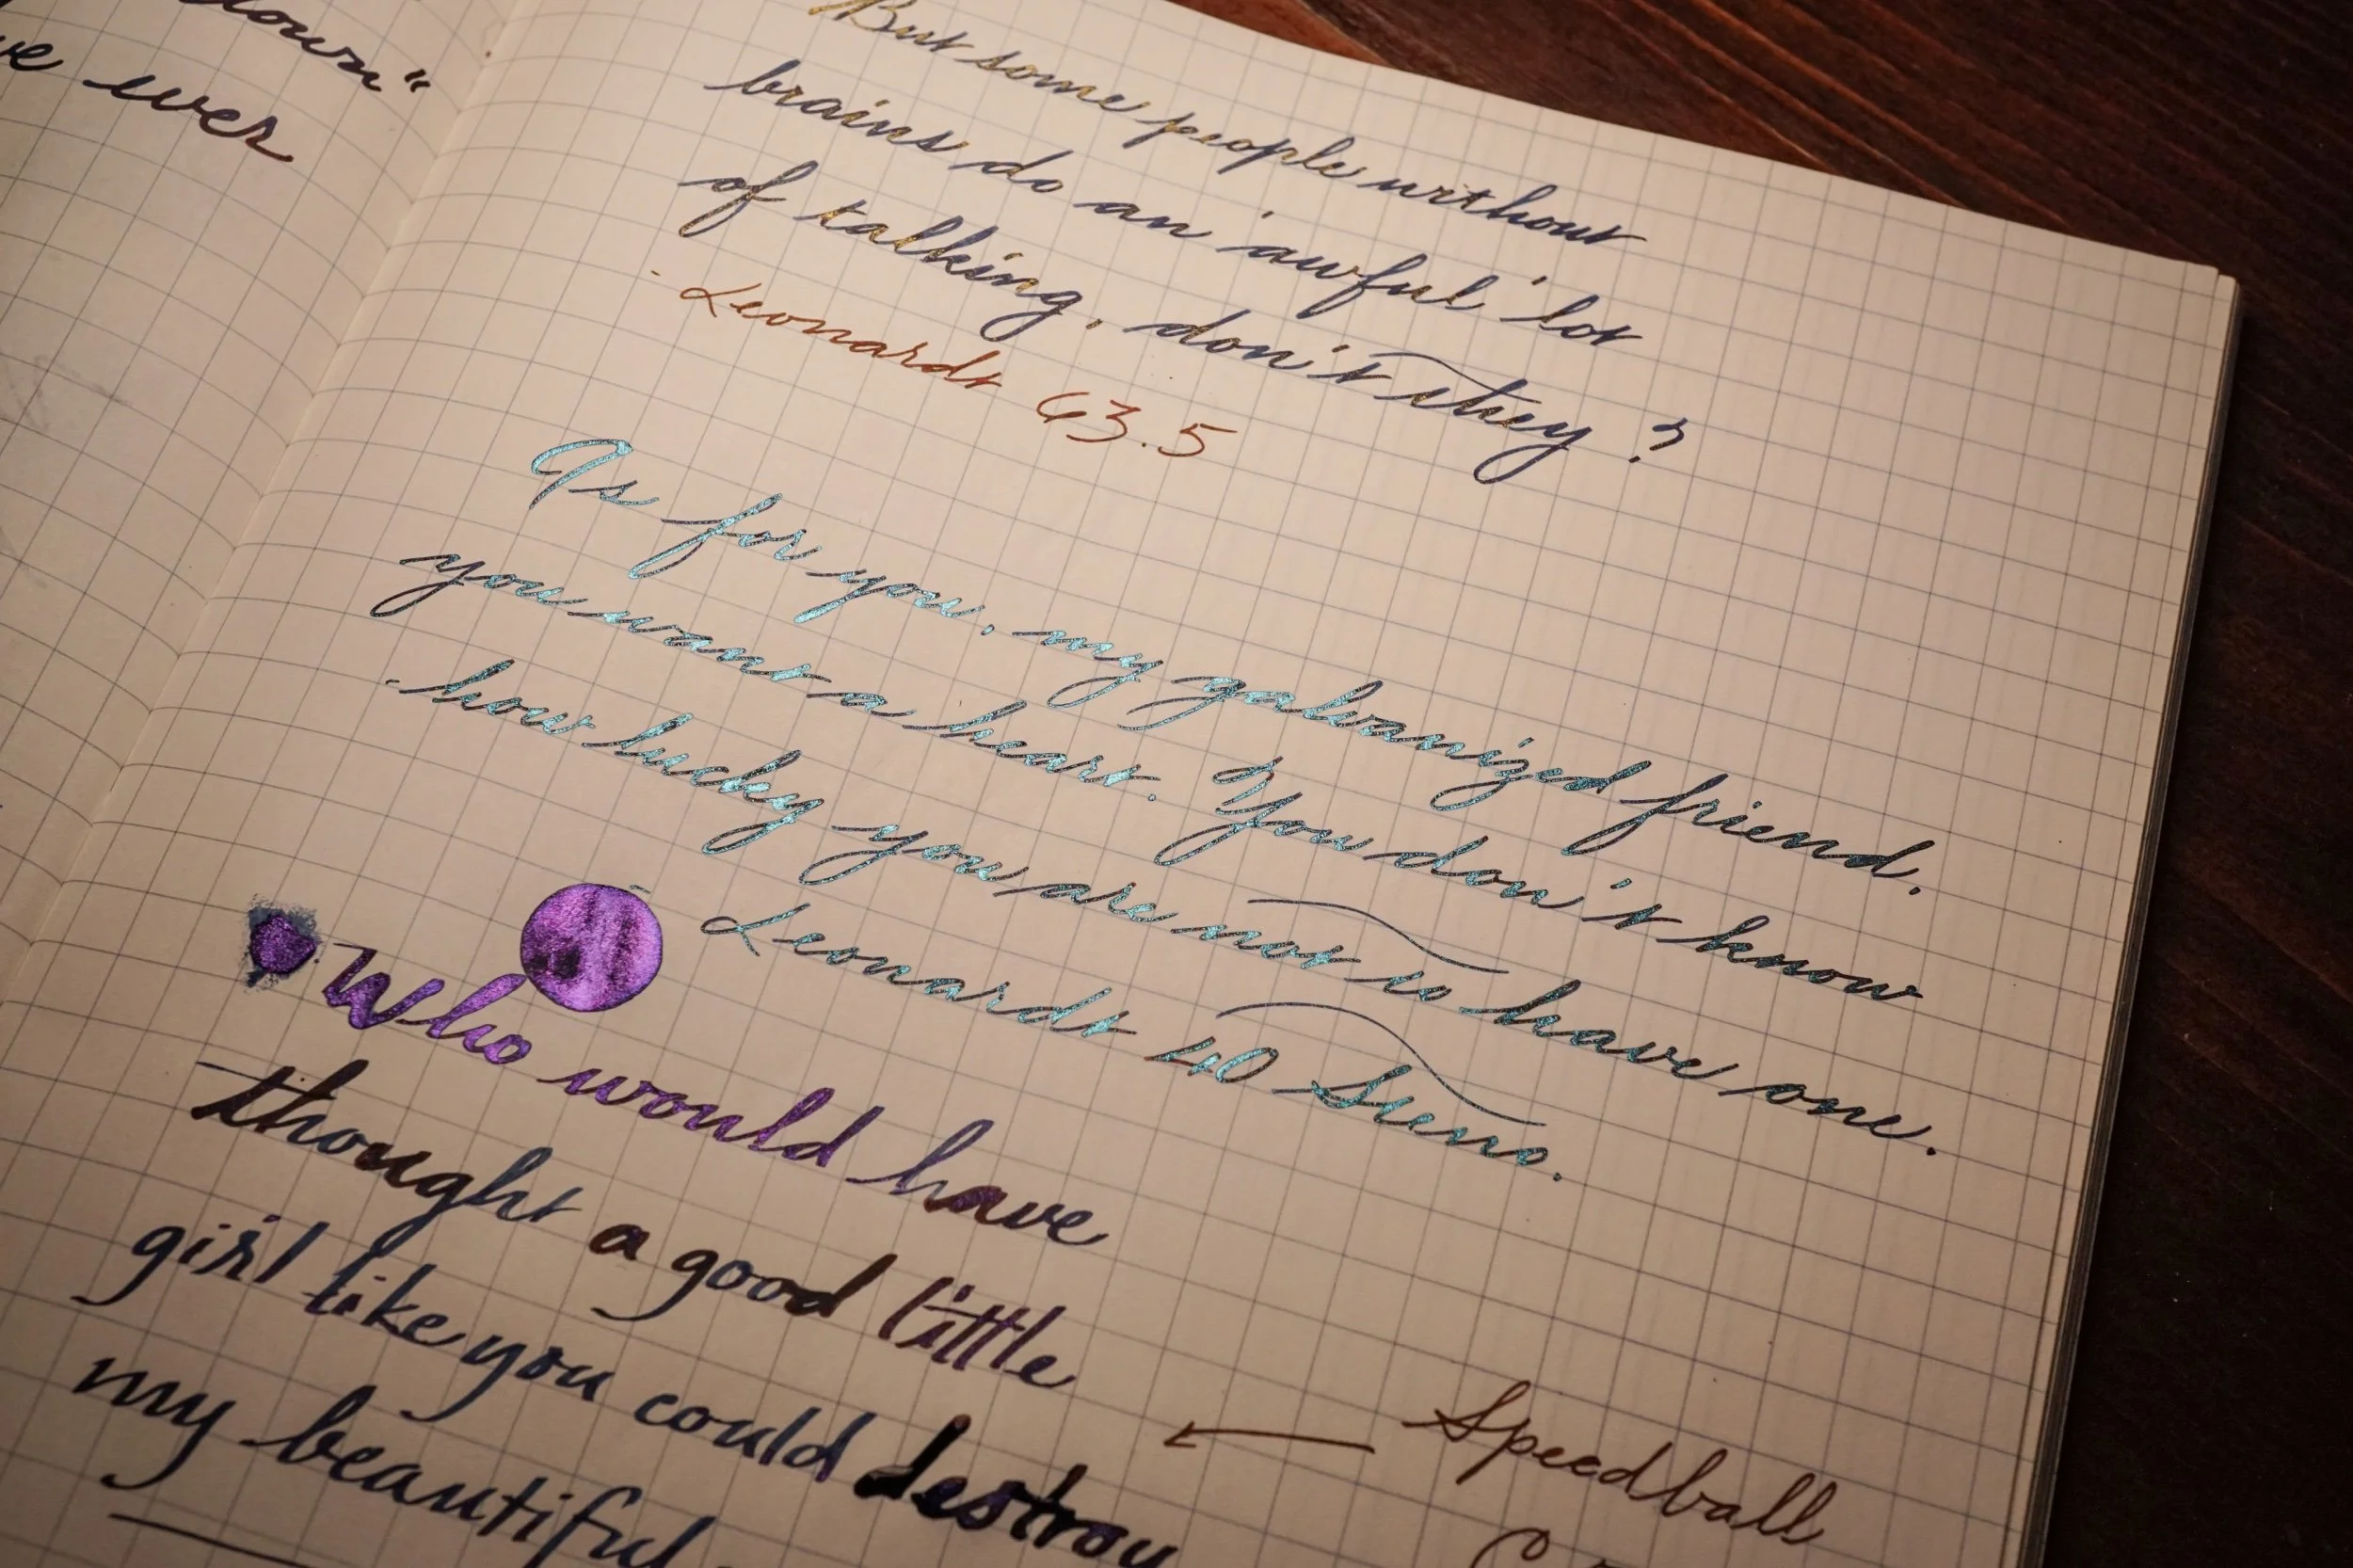 down"
ever
But some people without
brains do an awful lot
of talking, don't they?
Leonardt 63.5
As for you, my galvanized friend,
you want a heart. You don't know
how lucky you are not to have one.
Leonardt 40 Sumo.
Who would have
thought a good little
girl like you could destroy
my beautiful
Speedball